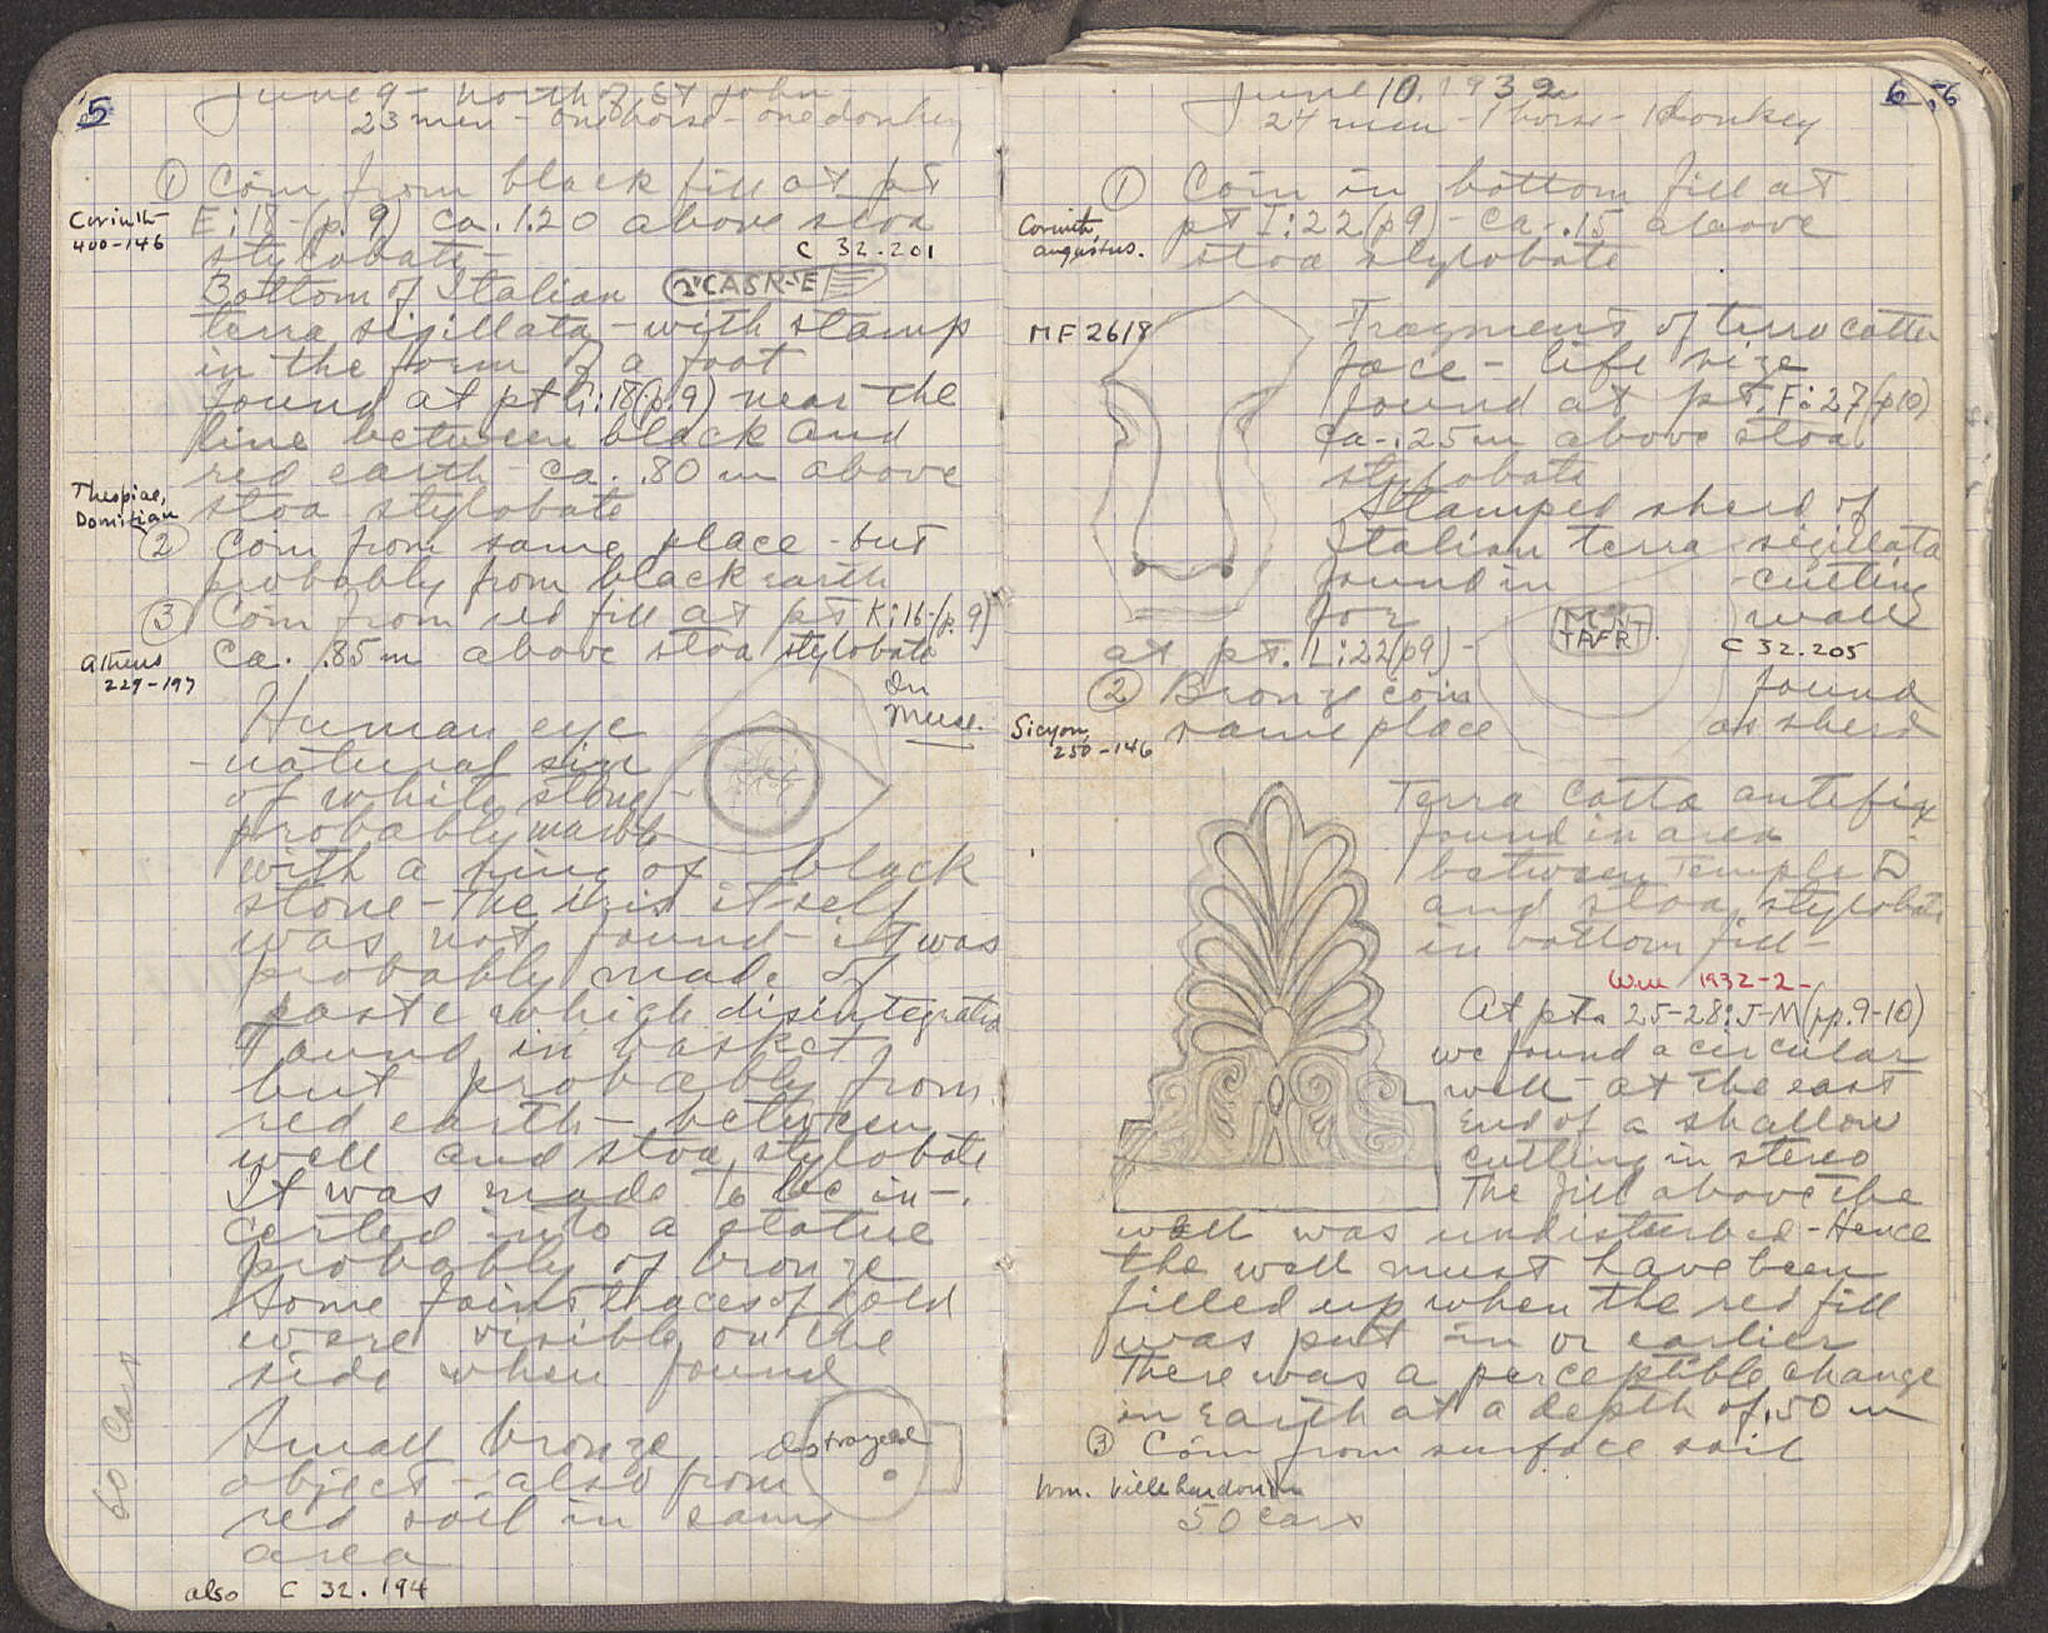 5
June 9 - North of St John
23 men - one horse - one donkey
① Coin from black fill at pt
Corinth
400-146
E:18-(p. 9) ca. 1.20 above stoa
stylobate-
C 32.201
Bottom of Italian
CASR-E
terra sigillata - with stamp
in the form of a foot
Found at pt G:18(p.9) near the
line between black and
red earth - ca. .80 m above
stoa stylobate
Thespiae,
Domitian
② Coin from same place - but
probably from black earth
③ Coin from red fill at pt K:16-(p. 9)
Ca. .85 m above stoa stylobate
Athens
229-197
In
Muse.
Human eye
-natural size
of white stone-
probably marble
with a ring of black
stone - The iris itself
was not found - it was
probably made of
paste which disintegrated
Found in basket
but probably from
red earth - between
well and stoa stylobate
It was made to be in-
certed into a statue
probably of bronze
Some faint traces of gold
were visible on the
side when found
60 Cars
Small bronze
destroyed
object - also from
red soil in same
area
also C 32.194
6
June 10, 1932
24 men - 1 horse - 1 donkey
① Coin in bottom fill at
Corinth,
Augustus.
pt I:22 (p9) - Ca. .15 above
stoa stylobate
MF 2618
Fragment of terra cotta
face - life size
found at pt. F:27 (p10)
ca. .25m above stoa
stylobate
Stamped sherd of
Italian terra sigillata
found in cutting
for wall
TRFR
C 32.205
at pt. L:22(p9) -
② Bronze coin found
same place as sherd
Sicyon,
250-146
Terra Cotta antefix
found in area
between Temple D
and stoa stylobate
in bottom fill-
1932-2-
At pts 25-28:J-M (pp.9-10)
we found a circular
well - at the east
end of a shallow
cutting in stereo
The fill above the
well was undisturbed - Hence
the well must have been
filled up when the red fill
was put in or earlier
There was a perceptible change
in earth at a depth of .50 m
③ Coin from surface soil
Wm. Villehardouin
50 cars